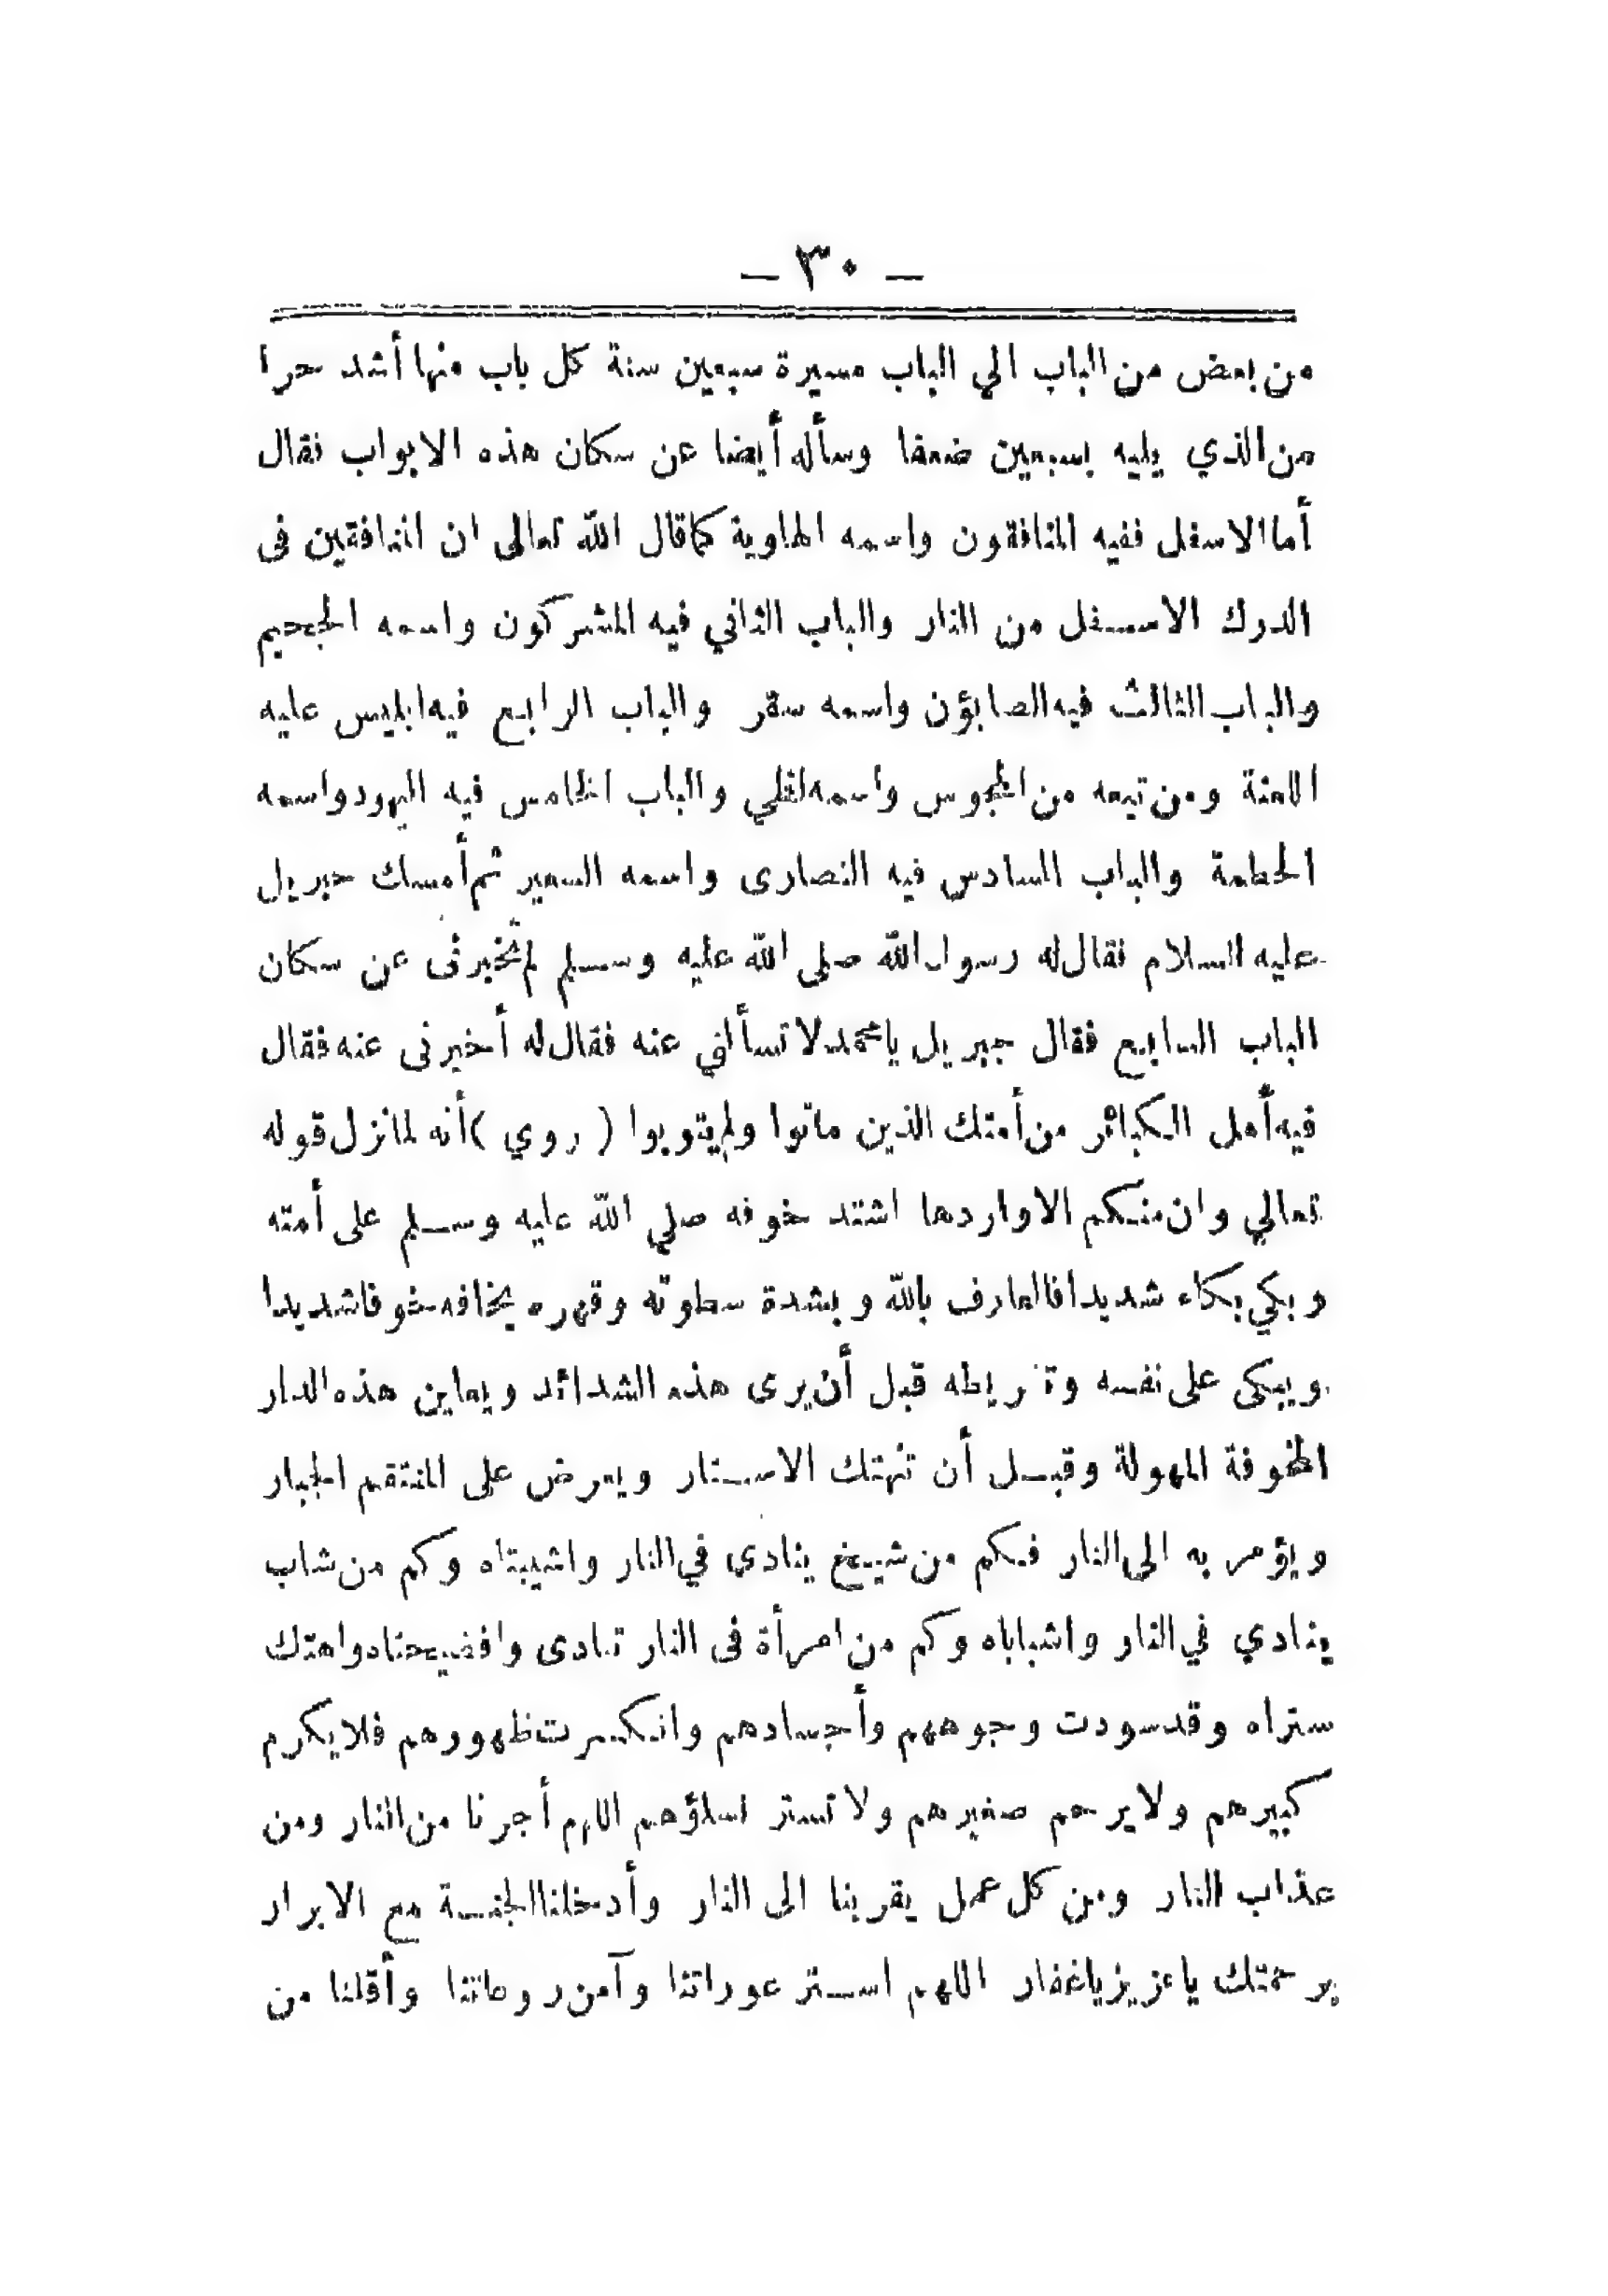 — ٣٠ —
من بعض من الباب الي الباب مسيرة سبعين سنة كل باب منها أشد حرا
من الذي يليه بسبعين ضعفا وسأله أيضا عن سكان هذه الابواب فقال
أما الاسفل ففيه المنافقون واسمه الهاوية كما قال الله تعالى ان المنافقين فى
الدرك الاسفل من النار والباب الثاني فيه المشركون واسمه الجحيم
والباب الثالث فيه الصابؤن واسمه سقر والباب الرابع فيه ابليس عليه
اللعنة ومن تبعه من المجوس واسمه لظي والباب الخامس فيه اليهود واسمه
الحطمة والباب السادس فيه النصارى واسمه السعير ثم أمسك جبريل
عليه السلام فقال له رسول الله صلى الله عليه وسلم لم تخبرنى عن سكان
الباب السابع فقال جبريل يا محمد لا تسألني عنه فقال له أخبرنى عنه فقال
فيه أهل الكبائر من أمتك الذين ماتوا ولم يتوبوا ( روي ) أنه لما نزل قوله
تعالي وان منكم الا واردها اشتد خوفه صلي الله عليه وسلم على أمته
وبكي بكاء شديدا فالعارف بالله وبشدة سطوته وقهره يخافه خوفا شديدا
ويبكى على نفسه وتفريطه قبل أن يرى هذه الشدائد ويعاين هذه الدار
المخوفة المهولة وقبل أن تهتك الاستار ويعرض على المنتقم الجبار
ويؤمر به الى النار فكم من شيخ ينادى في النار واشيبتاه وكم من شاب
ينادي في النار واشباباه وكم من امرأة فى النار تنادى وافضيحتاه واهتك
ستراه وقد سودت وجوههم وأجسادهم وانكسرت ظهورهم فلا يكرم
كبيرهم ولا يرحم صغيرهم ولا تستر نساؤهم اللهم أجرنا من النار ومن
عذاب النار ومن كل عمل يقربنا الى النار وأدخلنا الجنة مع الابرار
برحمتك يا عزيز يا غفار اللهم استر عوراتنا وآمن روعاتنا وأقلنا من